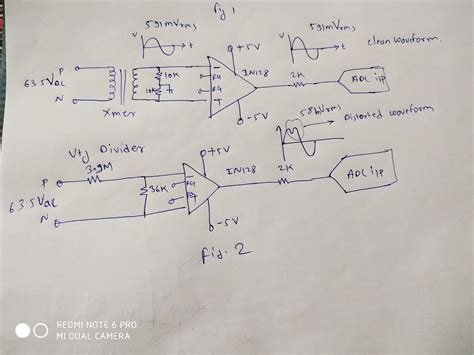 fig 1
591mVrms
591mVrms
V
t
+5V
V
t
clean waveform.
P
63.5Vac
N
Xmer
10K
10K
RG
RG
IN128
2K
ADC i/p
-5V
586mVrms
Distorted waveform
Vtg Divider
3.9M
P
63.5Vac
N
36K
RG
RG
+5V
IN128
2K
ADC i/p
-5V
fig. 2
REDMI NOTE 6 PRO
MI DUAL CAMERA